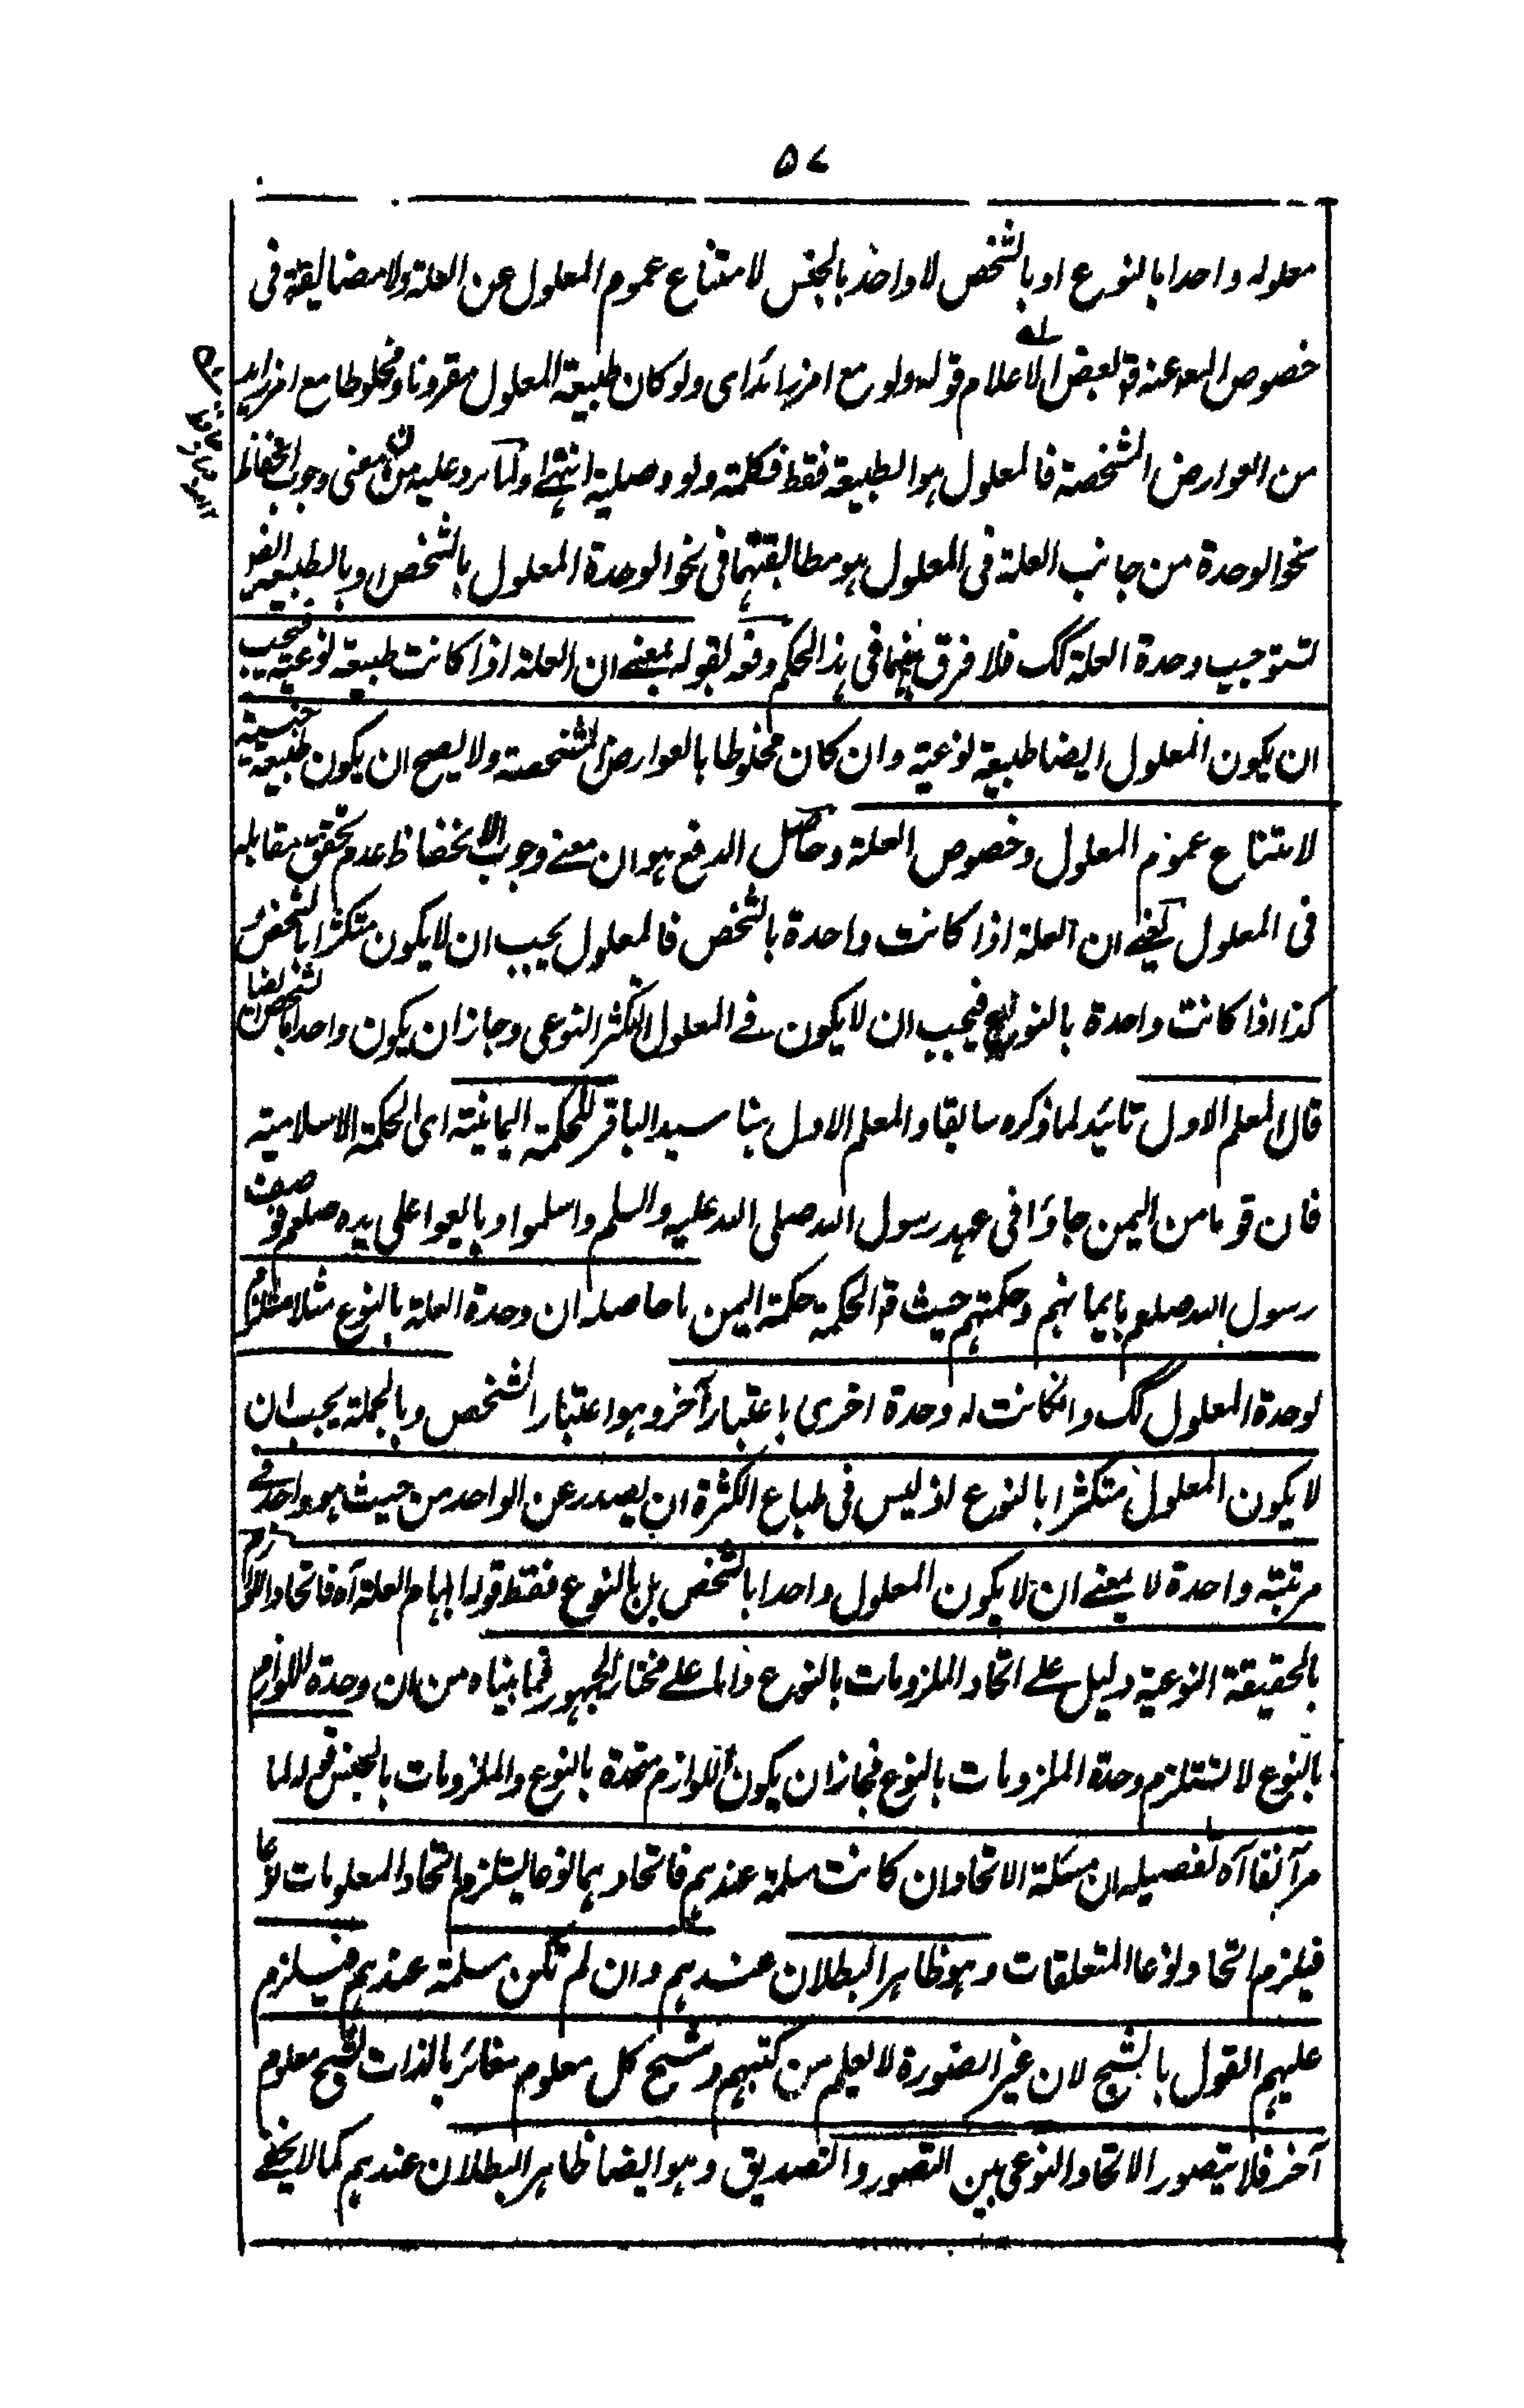 ٥٧
معلوله واحدا بالنوع او بالشخص لا واحد بالجنس لامتناع عموم المعلول عن العلة ولا مضايقة فى
خصوص البعد عنه قد لبعض الاعلام قوله ولو مع امر زائد اى ولو كان طبيعة المعلول مقرونا ومخلوطا مع امر زايد
من العوارض الشخصة فالمعلول هو الطبيعة فقط فكلمة ولو وصلية انتهى ولما يرد عليه من ان معنى وجوب انحفاظ
نحو الوحدة من جانب العلة فى المعلول هو مطابقتهما فى نحو الوحدة المعلول بالشخص او بالطبيعة
لتستوجب وحدة العلة كك فلا فرق بينهما فى هذا الحكم دفعه بقوله بمعنى ان العلة اذا كانت طبيعة نوعية فيجب
ان يكون المعلول ايضا طبيعة نوعية وان كان مخلوطا بالعوارض الشخصة ولا يصح ان يكون طبيعة جنسية
لامتناع عموم المعلول وخصوص العلة وحاصل الدفع هو ان معنى وجوب الانحفاظ عدم تحقق مقابله
فى المعلول يعنى ان العلة اذا كانت واحدة بالشخص فالمعلول يجب ان لا يكون متكثرا بالشخص و
كذا اذا كانت واحدة بالنوع فيجب ان لا يكون فى المعلول التكثر النوعى وجاز ان يكون واحدا بالشخص ايضا
قال المعلم الاول تائيد لما ذكره سابقا والمعلم الاول هنا سيد الباقر للحكمة اليمانية اى الحكمة الاسلامية
فان قوما من اليمن جاؤا فى عهد رسول الله صلى الله عليه والسلم واسلموا وبايعوا على يده صلعم فوصف
رسول الله صلعم بايمانهم وحكمتهم حيث قد الحكمة حكمة اليمن ما حاصله ان وحدة العلة بالنوع مثلا مستلزم
لوحدة المعلول كك وانكانت له وحدة اخرى باعتبار آخر وهو اعتبار الشخص وبالجملة يجب ان
لا يكون المعلول متكثرا بالنوع اذ ليس فى طباع الكثرة ان يصدر عن الواحد من حيث هو واحد فى
مرتبته واحدة لا بمعنى ان لا يكون المعلول واحدا بالشخص بل بالنوع فقط قوله ابهام العلة آه فاتحاد اللوازم
بالحقيقة النوعية دليل على اتحاد الملزومات بالنوع واما على مختار الجمهور فما بيناه من ان وحدة اللوازم
بالنوع لا تستلزم وحدة الملزومات بالنوع فجاز ان يكون اللوازم متحدة بالنوع والملزومات بالجنس قوله لما
مر آنفا آه تفصيله ان مسئلة الاتحاد ان كانت مسلمة عندهم فاتحادهما نوعا يستلزم اتحاد المعلومات نوعا
فيلزم اتحاد نوعا المتعلقات وهو ظاهر البطلان عندهم وان لم تكن مسلمة عندهم فيلزم
عليهم القول بالشبح لان غير الصورة لا يعلم من كتبهم وشبح كل معلوم مغائر بالذات لشبح معلوم
آخر فلا يتصور الاتحاد النوعى بين التصور والتصديق وهو ايضا ظاهر البطلان عندهم كما لا يخفى